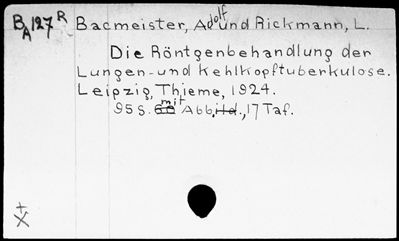 BA127R Bacmeister, Adolf und Rickmann, L.
Die Röntgenbehandlung der
Lungen- und Kehlkopftuberkulose.
Leipzig, Thieme, 1924.
95 S. mit Abb., 17 Taf.